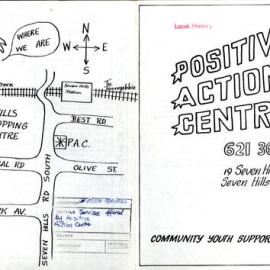 WHERE
WE ARE
N
W E
S
Seven Hills
Station
To
BEST RD
P.A.C.
OLIVE ST.
SEVEN HILLS RD SOUTH
Services offered
by Positive
Action Centre
Local History
POSITIV
ACTION
CENTR
621 3
19 Seven H
Seven Hills
COMMUNITY YOUTH SUPPOR